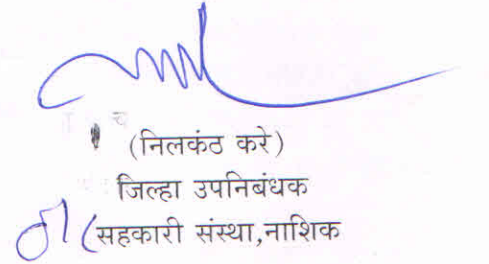 (निलकंठ करे)
जिल्हा उपनिबंधक
सहकारी संस्था,नाशिक